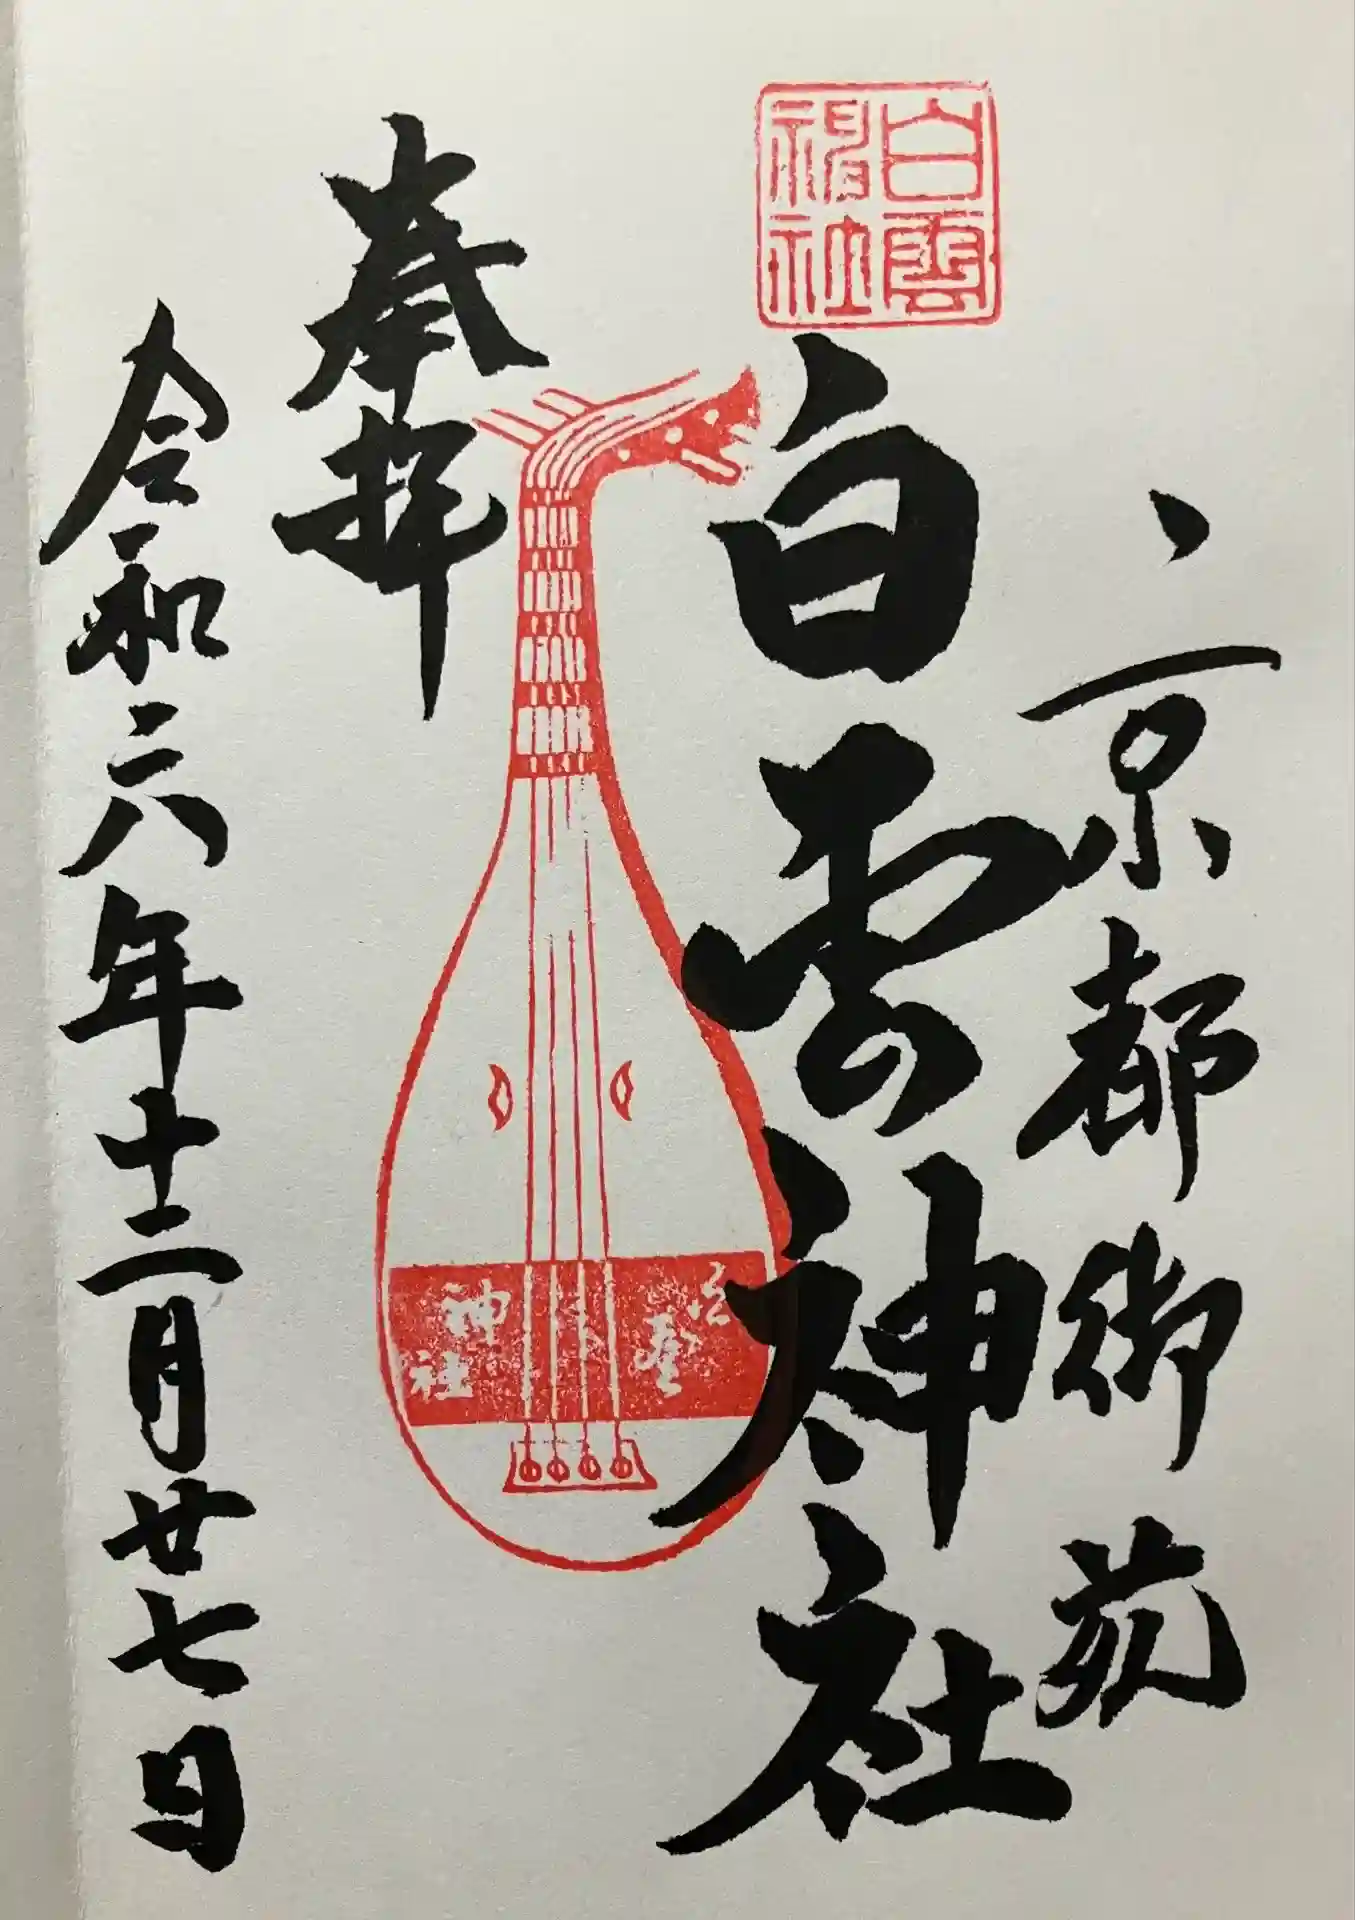 京都御苑
白雲神社
白雲神社
奉拝
神社
令和六年十二月廿七日